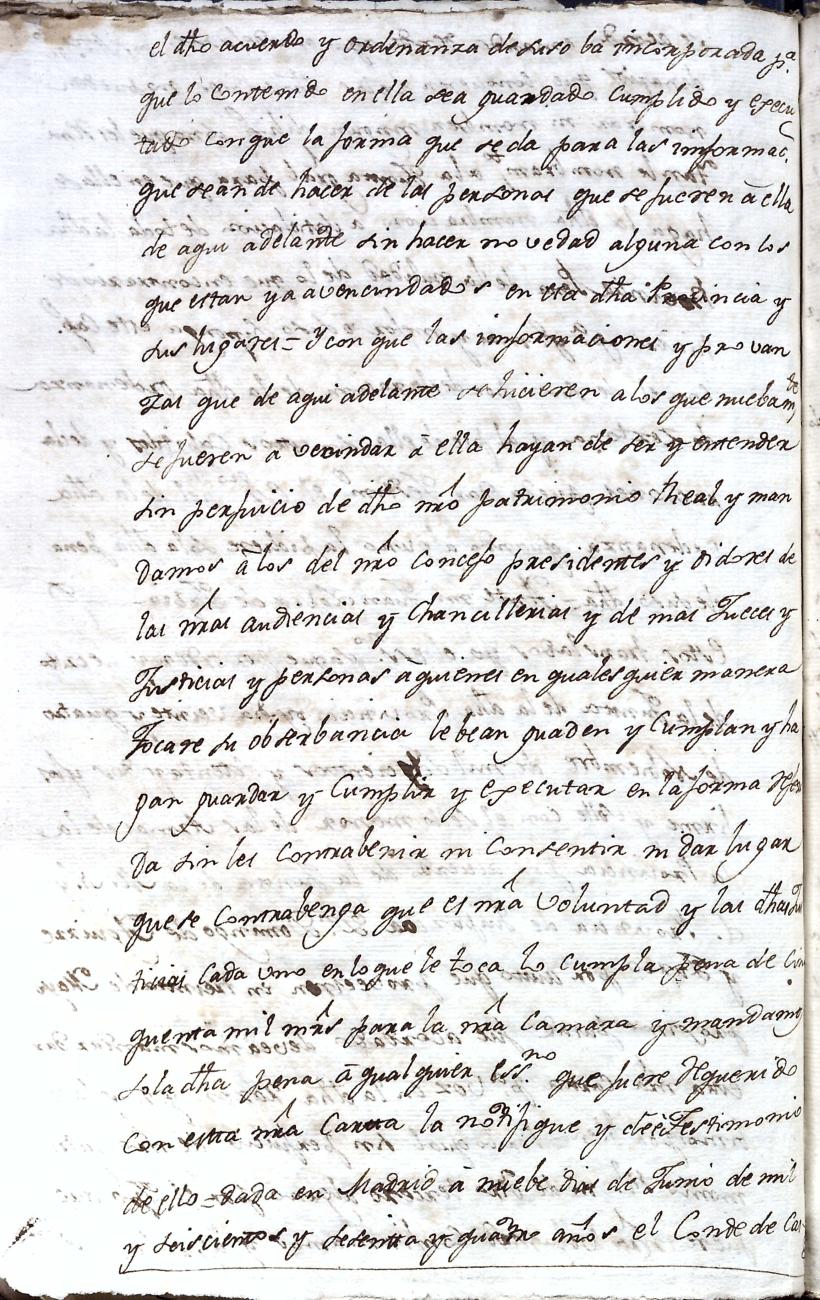 el dho acuerdo y ordenanza desuso ba incorporada pa.
que lo contenido en ella sea guardado cumplido y execu
tado con que la forma que se da para las informac.
que sean de hacer de las personas que se fueren à ella
de aqui adelante sin hacer novedad alguna con los
que estan ya avencindados en esta dha Provincia y
sus lugares = y con que las informaciones y provan
zas que de aqui adelante se hicieren a los que nuebamte
se fueren a vecindar à ella hayan de ser y entender
sin perjuicio de dho nro patrimonio Real y man
damos à los del nro concejo presidentes y oidores de
las nras audiencias y Chancillerias y demas Jueces y
Justicias y personas a quienes en qualesquier manera
tocare su obserbancia lebean guaden y cumplan y ha
gan guardar y cumplir y executar en la forma
da sin les contrabenir ni consentir ni dar lugar
que se contrabenga que es nra voluntad y las dhas Jus
ticias cada uno en lo que le toca lo cumpla pena de cin
quenta mil mrs para la nra camara y mandamos
sola dha pena à qualquier essno. que fuere requerido
con esta nra Carta la notifique y deè Testimonio
de ello = dada en Madrid à nuebe dias de Junio de mil
y seiscientos y sesenta y quatro años el Conde de Cas